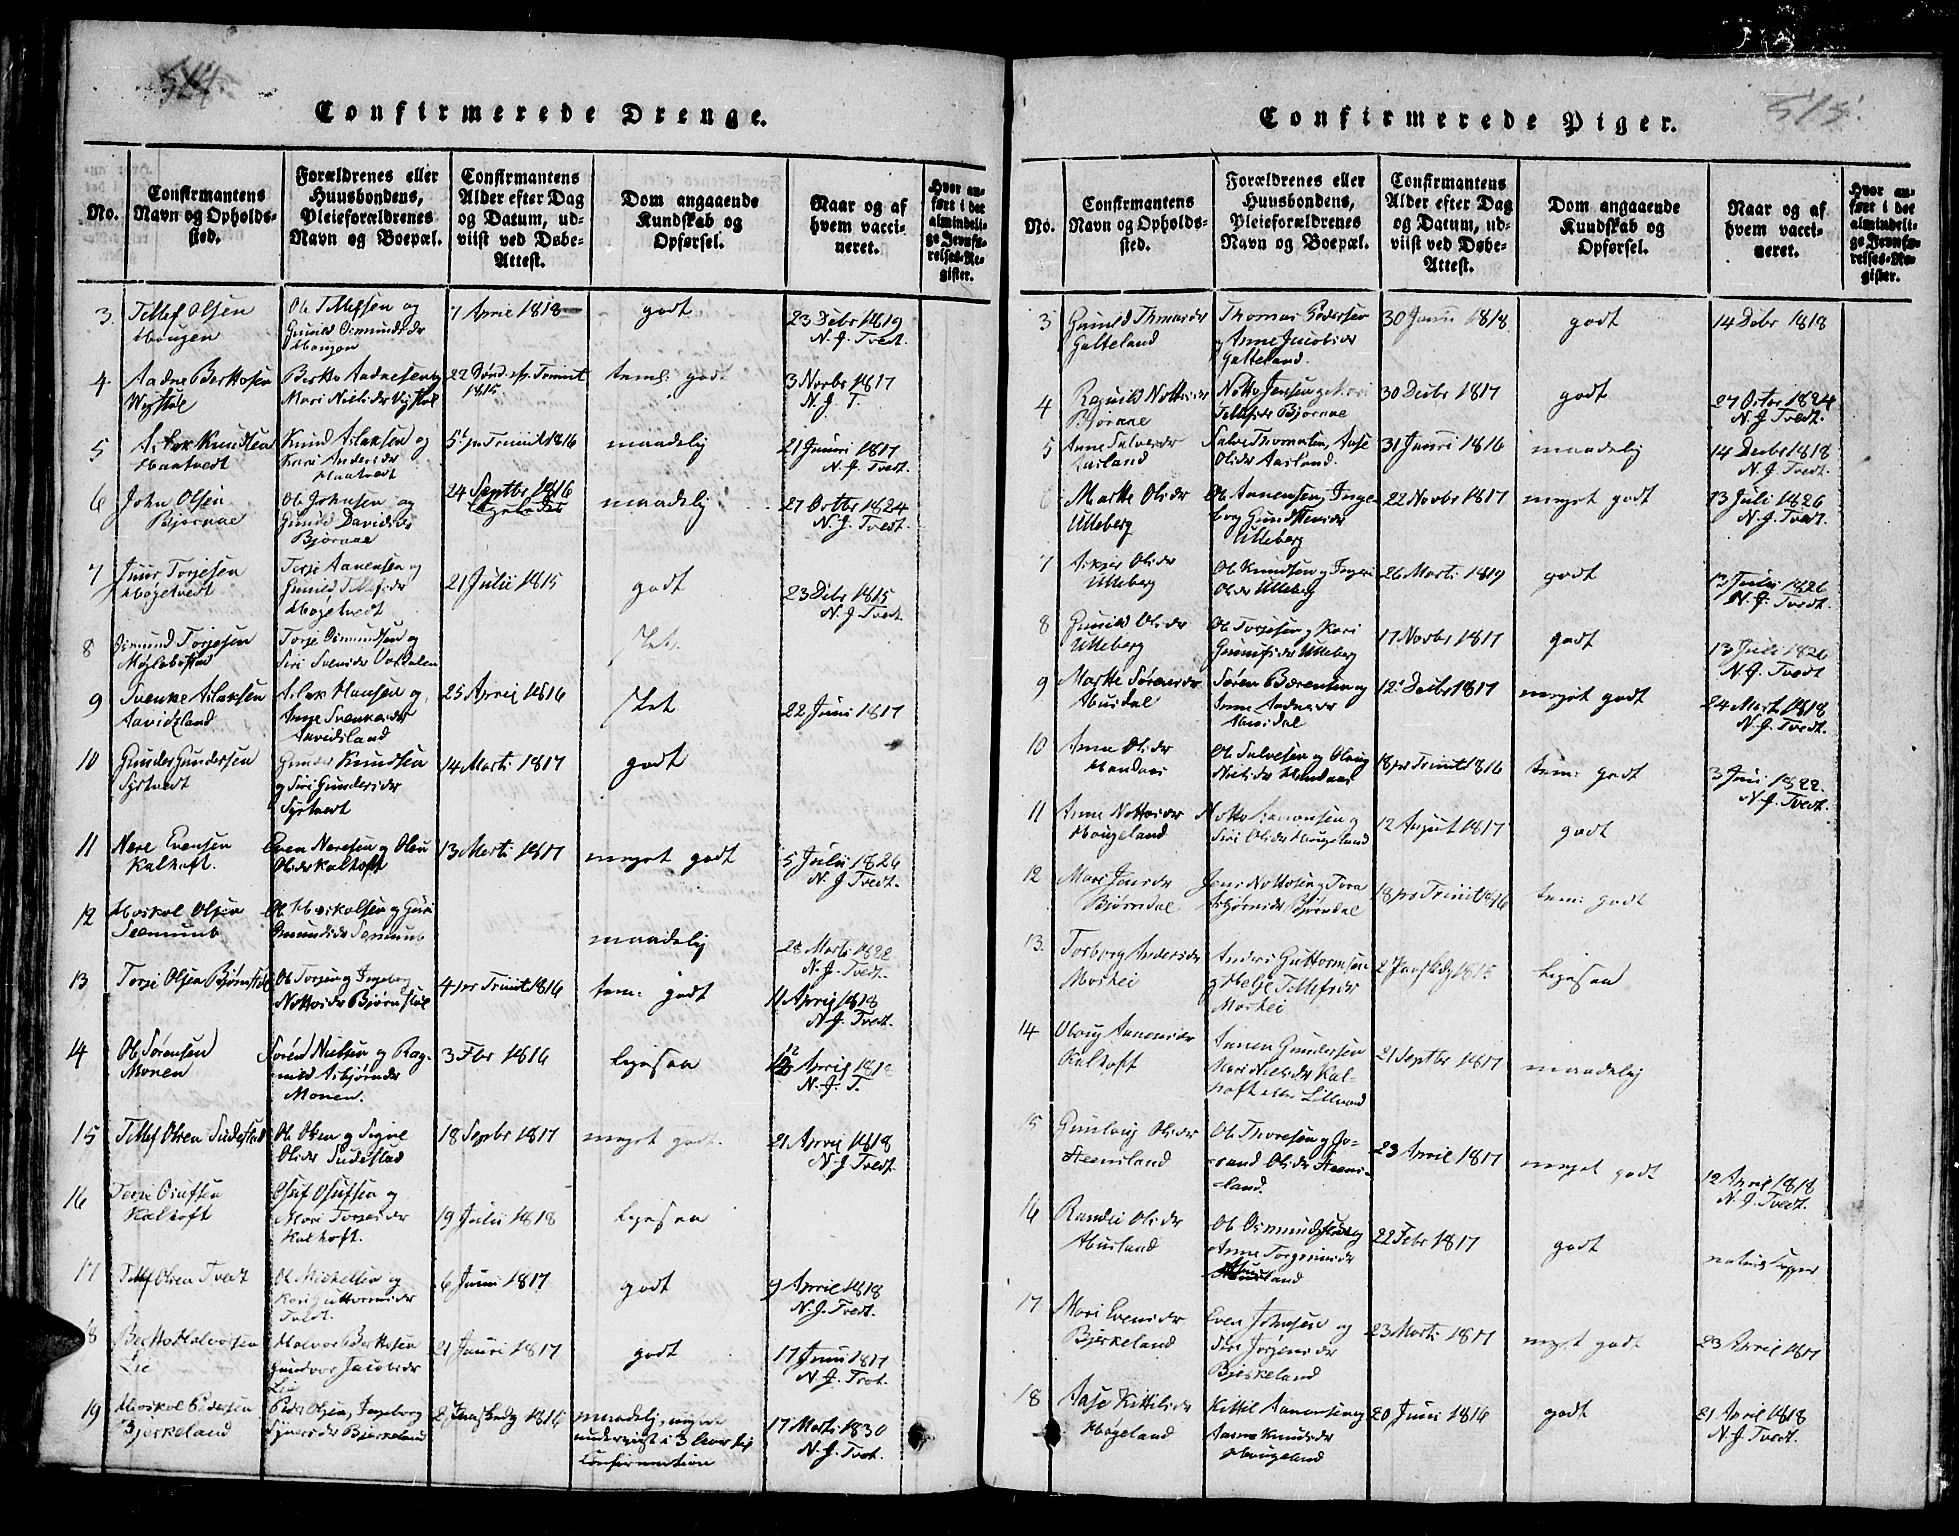 514.
Confirmerede Drenge.
No.
Confirmantens Navn og Opholdssted.
Forældrenes eller Huusbondens, Pleieforældrenes Navn og Boepæl.
Confirmantens Alder efter Dag og Datum, udviist ved Døbe-Attest.
Dom angaaende Kundskab og Opførsel.
Naar og af hvem vaccineret.
Hvor anført i det almindelige Jevnførelses-Register.
3. Tellef Olsen
Ole Tellefsen og
Gunild Osmundsdr
7 April 1818
godt
23 Debr 1819
N. J. Tvedt.
4. Aadne Berthosen
Bertho Aadnesen og
Mari Nielsdr
1815
teml: godt
3 Novbr 1817
N. J. T.
5 Aslak Knudsen
Knud Aslaksen og
Kari Andersdr
5 p Trinit 1816
maadelig
21 Januri 1817
N. J. Tvedt.
6 John Olsen
Bjoraae
Ole Johnsen og
Gunild Davidsdr
Bjoraae
24 Septbr 1816
maadelig
27 Octbr 1824
N. J. Tvedt.
7 Juur Torjesen
Høgetvedt
Terje Aanensen og
Gunild Tellefsdr
Høgetvedt
21 Julii 1815
godt
23 Debr 1815
N. J. Tvedt.
8 Osmund Torjesen
Torje Osmundsen og
Siri Svensdr
Slet.
9 Svenke Aslaksen
Aavidsland
Aslak Hansen og
Svenkesdr
Aavidsland
25 April 1816
Slet
22 Juni 1817
10 Gunder Gundersen
Syrtvedt
Gunder Knudsen
og Siri Gundersdr
Syrtvedt
14 Marti 1817
godt
11 Nere Evensen
Kalhoft.
Even Neresen og
Olsdr Kalhoft
13 Marti 1817
meget godt
5 Julii 1826
N. J Tvedt.
12 Olsen
maadelig
28 Marti 1822
N. J. Tvedt.
13 Torje Olsen Bjørnstøl
Ole Torjesen og Ingeborg
Nottosdr Bjørnstøl
4 p Trinit 1816
tem: godt
11 April 1818
N. J. Tvedt.
14 Ole Sørensen
Monen
Søren Nielsen og Rag-
nild Asbjørnsdr
Monen.
3 Fbr 1816
Ligesaa
12 April 1818
N. J. T.
15 Tellef Olsen Sudestad
Ole Olsen og Signe
Olsdr Sudestad
18 Sepbr 1817
meget godt.
21 April 1818
N. J Tvedt.
16 Terje Osufsen
Kalhoft
Osuf Osufsen og
Mari Torjesdr
Kalhoft.
19 Julii 1818
Ligesaa
17 Tellef Olsen Tvedt
Ole Michelsen og
Kari Guttormsdr
Tvedt.
6 Juni 1817
godt
9 April 1818
N. J. Tvedt.
18 Bertho Halvorsen
Lie
Halvor Berthosen
Gundvor Jacobsdr
Lie
21 Januri 1817
godt
17 Juni 1817
N. J. Tvdt.
19 Pedersen
Bjerkeland
Peder Olsen, Ingeborg
Bjerkeland
1816
maadelig,
underviist i 3
confirmation
17 Marti 1830
N. J. Tvdt.
515.
Confirmerede Piger.
No.
Confirmantens Navn og Opholdssted.
Forældrenes eller Huusbondens, Pleieforældrenes Navn og Boepæl.
Confirmantens Alder efter Dag og Datum, udviist ved Døbe-Attest.
Dom angaaende Kundskab og Opførsel.
Naar og af hvem vaccineret.
Hvor anført i det almindelige Jevnførelses-Register.
3 Gunild Thomasdr
Galteland
Thomas Pedersen
og Anne Jacobsdr
Galteland.
30 Juni 1818
godt
14 Debr 1818
4 Ragnild Nottosdr
Bjoraae
Notto Jensen
Bjoraae
30 Decbr 1817
godt
27 Octbr 1824
N. J. Tvedt.
5 Anne Salvesdr
Salve Thomesen, Aase
Olsdr
31 Januri 1816
maadelig
14 Decbr 1818
N. J. Tvedt.
6 Marthe Olsdr
Utteberg
Ole Aanensen, Inge-
borg Gundstensdr
Utteberg
22 Novbr 1817
meget godt
13 Juli 1826
N. J. Tvedt.
7 Olsdr
Utteberg
Ole Knudsen og
Olsdr Utteberg
26 Marti 1819
godt
13 Julii 1826
N. J. Tvedt.
8 Gunild Olsdr
Utteberg
Ole Torjesen, Kari
Utteberg
17 Novbr 1817
godt
13 Julii 1826
N. J. Tvedt
9 Marthe Sørensdr
Abusdal
Søren Berentsen og
Anne Aadnesdr
Abusdal
12 Decbr 1817
meget godt
24 Marti 1818
N. J. Tvedt.
10 Anne Olsdr
Ole Salvesen og Olaug
Nielsdr
18 p Trinit 1816
tem: godt
3 Juni 1822.
N. J. Tvedt.
11 Anne Nottosdr
Hougeland
Notto Aanonsen og
Siri Olsdr Hougeland
12 August 1817
godt
12 Mari Jensdr
Bjørndal
Jens Nottosen, Tora
Asbjørnsdr Bjørndal
18 p Trinit 1816
tem: godt
13. Torborg Andersdr
Moshei
Anders Guttormsen
og Helje Tellefsdr
Moshei
1815
Ligesaa
14 Olaug Aanensdr
Kalhoft
Aanen Gundersen
Mari Nielsdr Kal-
hoft eller
21 Septbr 1817
maadelig
15 Gunlaug Olsdr
Heensland
Ole Thoresen og Jo-
rand Olsdr Heens-
land.
23 April 1817
meget godt
12 April 1818
N. J. Tvedt.
16 Randi Olsdr
Abusland
Ole Osmundsen og
Anne Torgersdr
Abusland
22 Febr 1817
godt
naturl. kopper
17 Mari Evensdr
Bjerkeland
Even Johnsen og
Siri Jørgensdr
Bjerkeland
23 Marti 1817
meget godt
23 April 1817
18 Aase Kittilsdr
Høgeland
Kittil Aanensen og
Aasne Knudsdr
Hougeland
20 Juni 1816
godt
21 April 1818
N. J Tvedt.